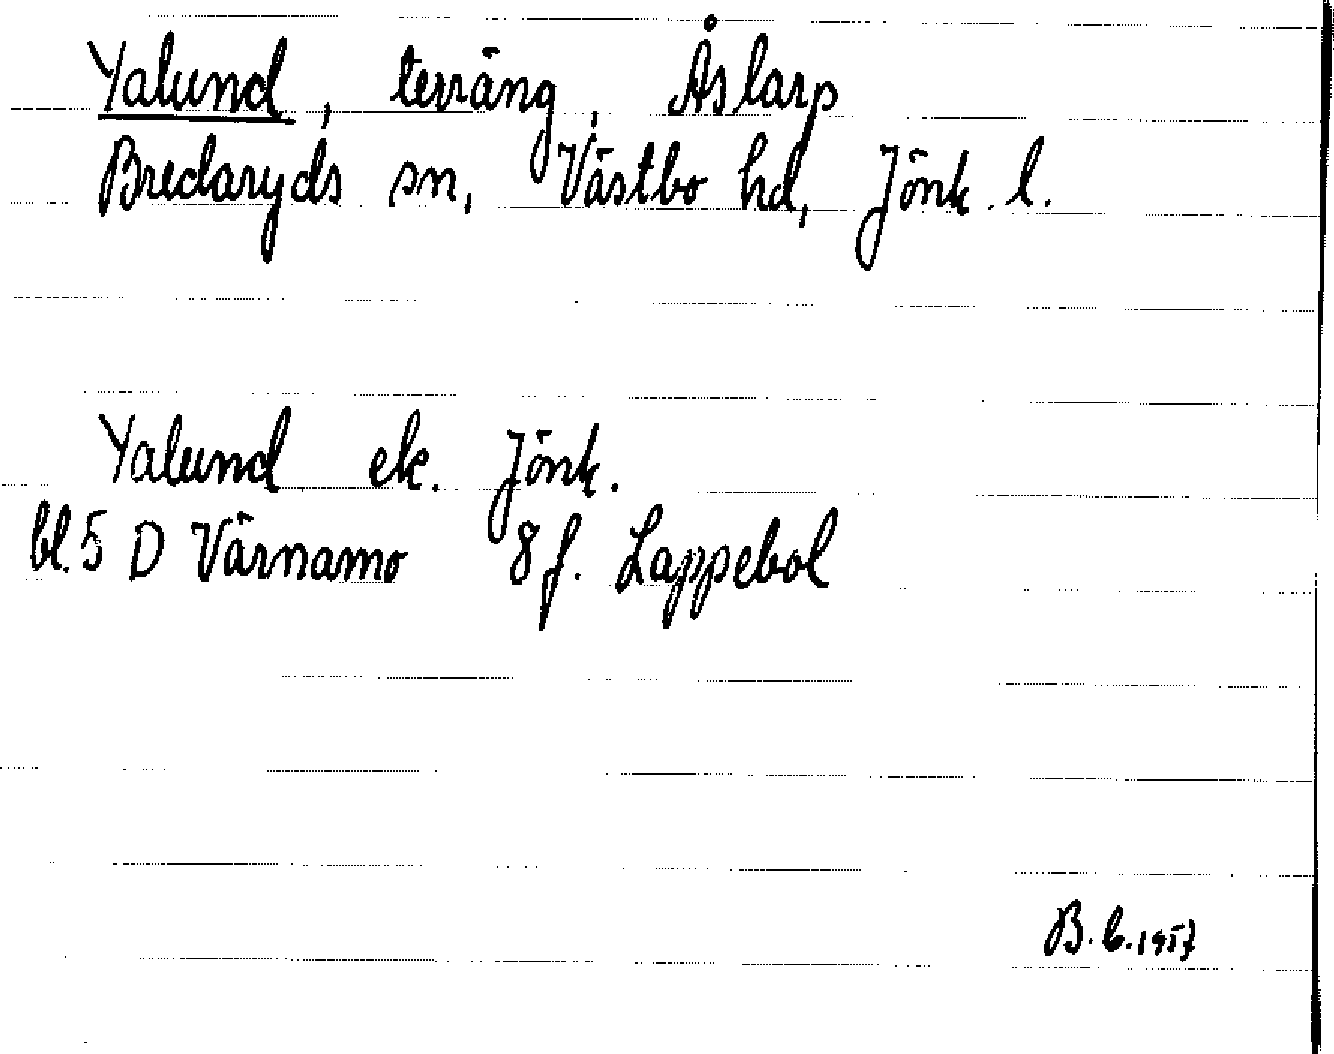 Yalund, terräng, Åslarp
Bredaryds sn, Västbo hd, Jönk. l.
Yalund ek. Jönk.
bl. 5 D Värnamo 8 f. Lappebol
B. 6. 1957